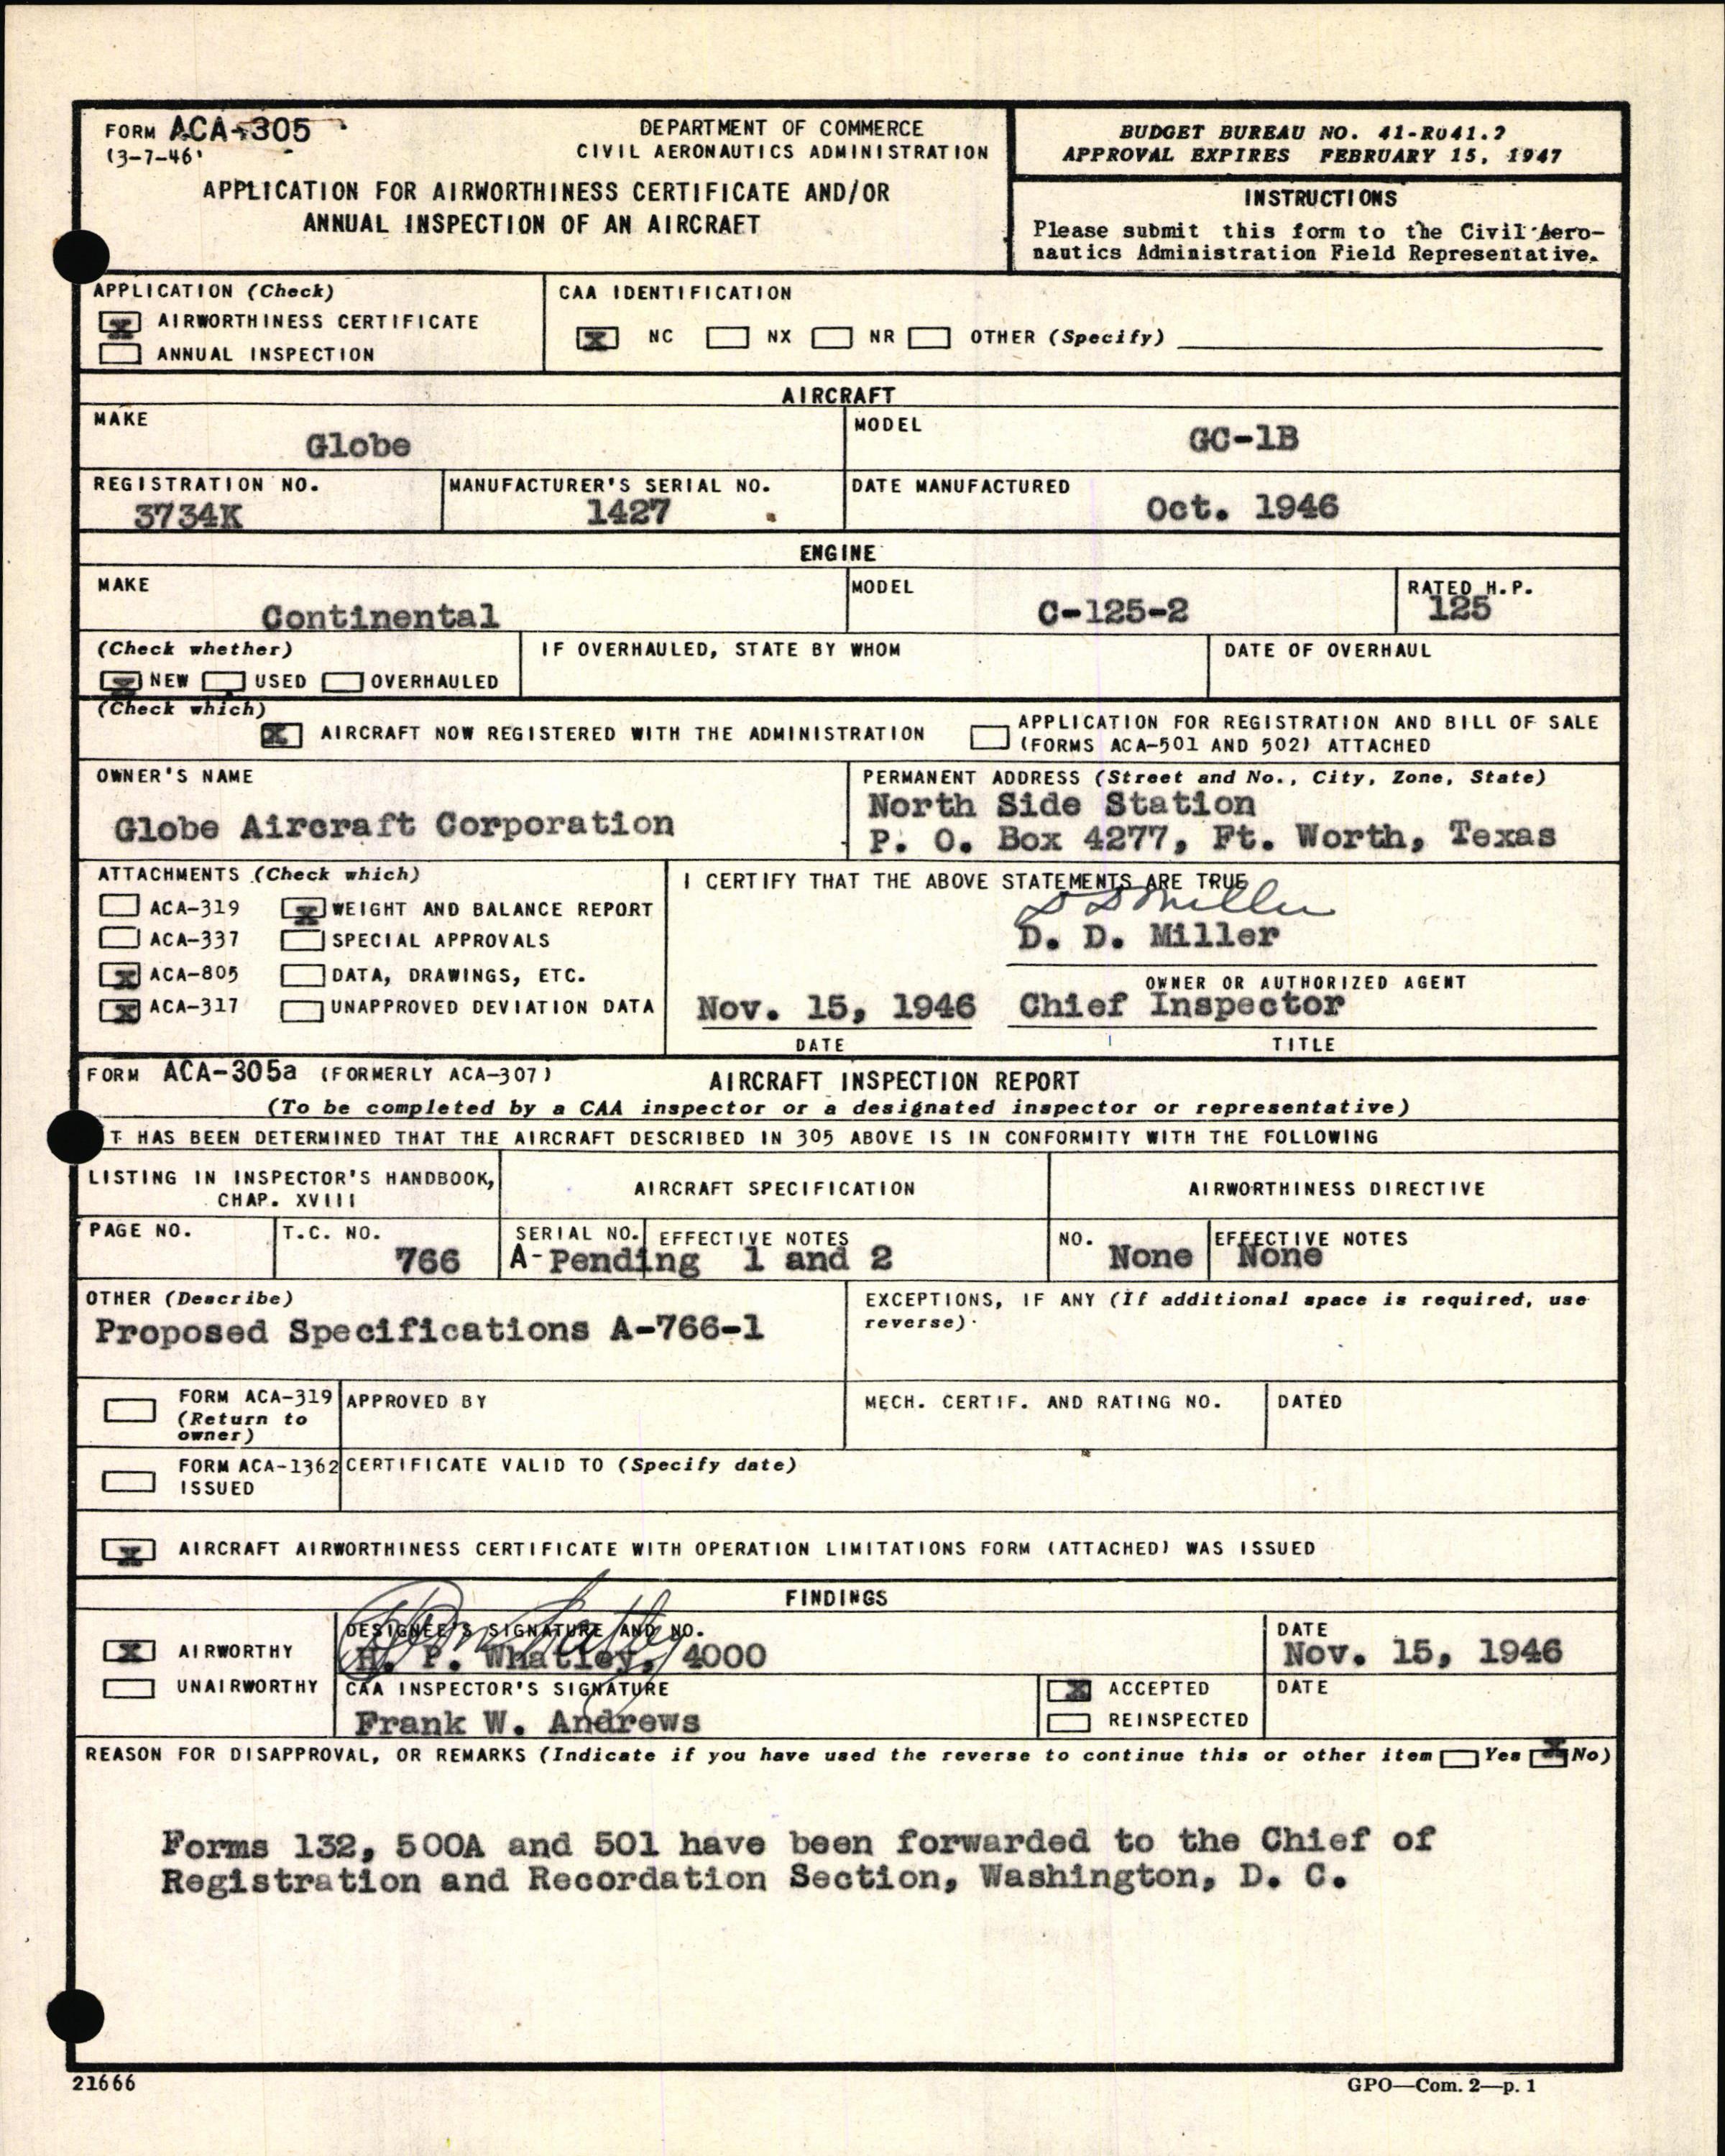 FORM ACA-305
(3-7-46)
DEPARTMENT OF COMMERCE
CIVIL AERONAUTICS ADMINISTRATION
APPLICATION FOR AIRWORTHINESS CERTIFICATE AND/OR
ANNUAL INSPECTION OF AN AIRCRAFT
BUDGET BUREAU NO. 41-R041.2
APPROVAL EXPIRES FEBRUARY 15, 1947
INSTRUCTIONS
Please submit this form to the Civil Aero-
nautics Administration Field Representative.
APPLICATION (Check)
X AIRWORTHINESS CERTIFICATE
ANNUAL INSPECTION
CAA IDENTIFICATION
X NC NX NR OTHER (Specify)
AIRCRAFT
MAKE
Globe
MODEL
GC-1B
REGISTRATION NO.
3734K
MANUFACTURER'S SERIAL NO.
1427
DATE MANUFACTURED
Oct. 1946
ENGINE
MAKE
Continental
MODEL
C-125-2
RATED H.P.
125
(Check whether)
X NEW USED OVERHAULED
IF OVERHAULED, STATE BY WHOM
DATE OF OVERHAUL
(Check which)
X AIRCRAFT NOW REGISTERED WITH THE ADMINISTRATION
APPLICATION FOR REGISTRATION AND BILL OF SALE
(FORMS ACA-501 AND 502) ATTACHED
OWNER'S NAME
Globe Aircraft Corporation
PERMANENT ADDRESS (Street and No., City, Zone, State)
North Side Station
P. O. Box 4277, Ft. Worth, Texas
ATTACHMENTS (Check which)
ACA-319 X WEIGHT AND BALANCE REPORT
ACA-337 SPECIAL APPROVALS
X ACA-805 DATA, DRAWINGS, ETC.
X ACA-317 UNAPPROVED DEVIATION DATA
I CERTIFY THAT THE ABOVE STATEMENTS ARE TRUE
D D Miller
D. D. Miller
OWNER OR AUTHORIZED AGENT
Nov. 15, 1946 Chief Inspector
DATE TITLE
FORM ACA-305a (FORMERLY ACA-307) AIRCRAFT INSPECTION REPORT
(To be completed by a CAA inspector or a designated inspector or representative)
T HAS BEEN DETERMINED THAT THE AIRCRAFT DESCRIBED IN 305 ABOVE IS IN CONFORMITY WITH THE FOLLOWING
LISTING IN INSPECTOR'S HANDBOOK,
CHAP. XVIII
AIRCRAFT SPECIFICATION
AIRWORTHINESS DIRECTIVE
PAGE NO.
T.C. NO.
766
SERIAL NO. EFFECTIVE NOTES
A-Pending 1 and 2
NO.
None
EFFECTIVE NOTES
None
OTHER (Describe)
Proposed Specifications A-766-1
EXCEPTIONS, IF ANY (If additional space is required, use
reverse)
FORM ACA-319
(Return to
owner)
APPROVED BY
MECH. CERTIF. AND RATING NO.
DATED
FORM ACA-1362
ISSUED
CERTIFICATE VALID TO (Specify date)
X AIRCRAFT AIRWORTHINESS CERTIFICATE WITH OPERATION LIMITATIONS FORM (ATTACHED) WAS ISSUED
FINDINGS
X AIRWORTHY
UNAIRWORTHY
DESIGNEE'S SIGNATURE AND NO.
H. P. Whatley, 4000
DATE
Nov. 15, 1946
CAA INSPECTOR'S SIGNATURE
Frank W. Andrews
X ACCEPTED
REINSPECTED
DATE
REASON FOR DISAPPROVAL, OR REMARKS (Indicate if you have used the reverse to continue this or other item Yes X No)
Forms 132, 500A and 501 have been forwarded to the Chief of
Registration and Recordation Section, Washington, D. C.
21666
GPO—Com. 2—p. 1